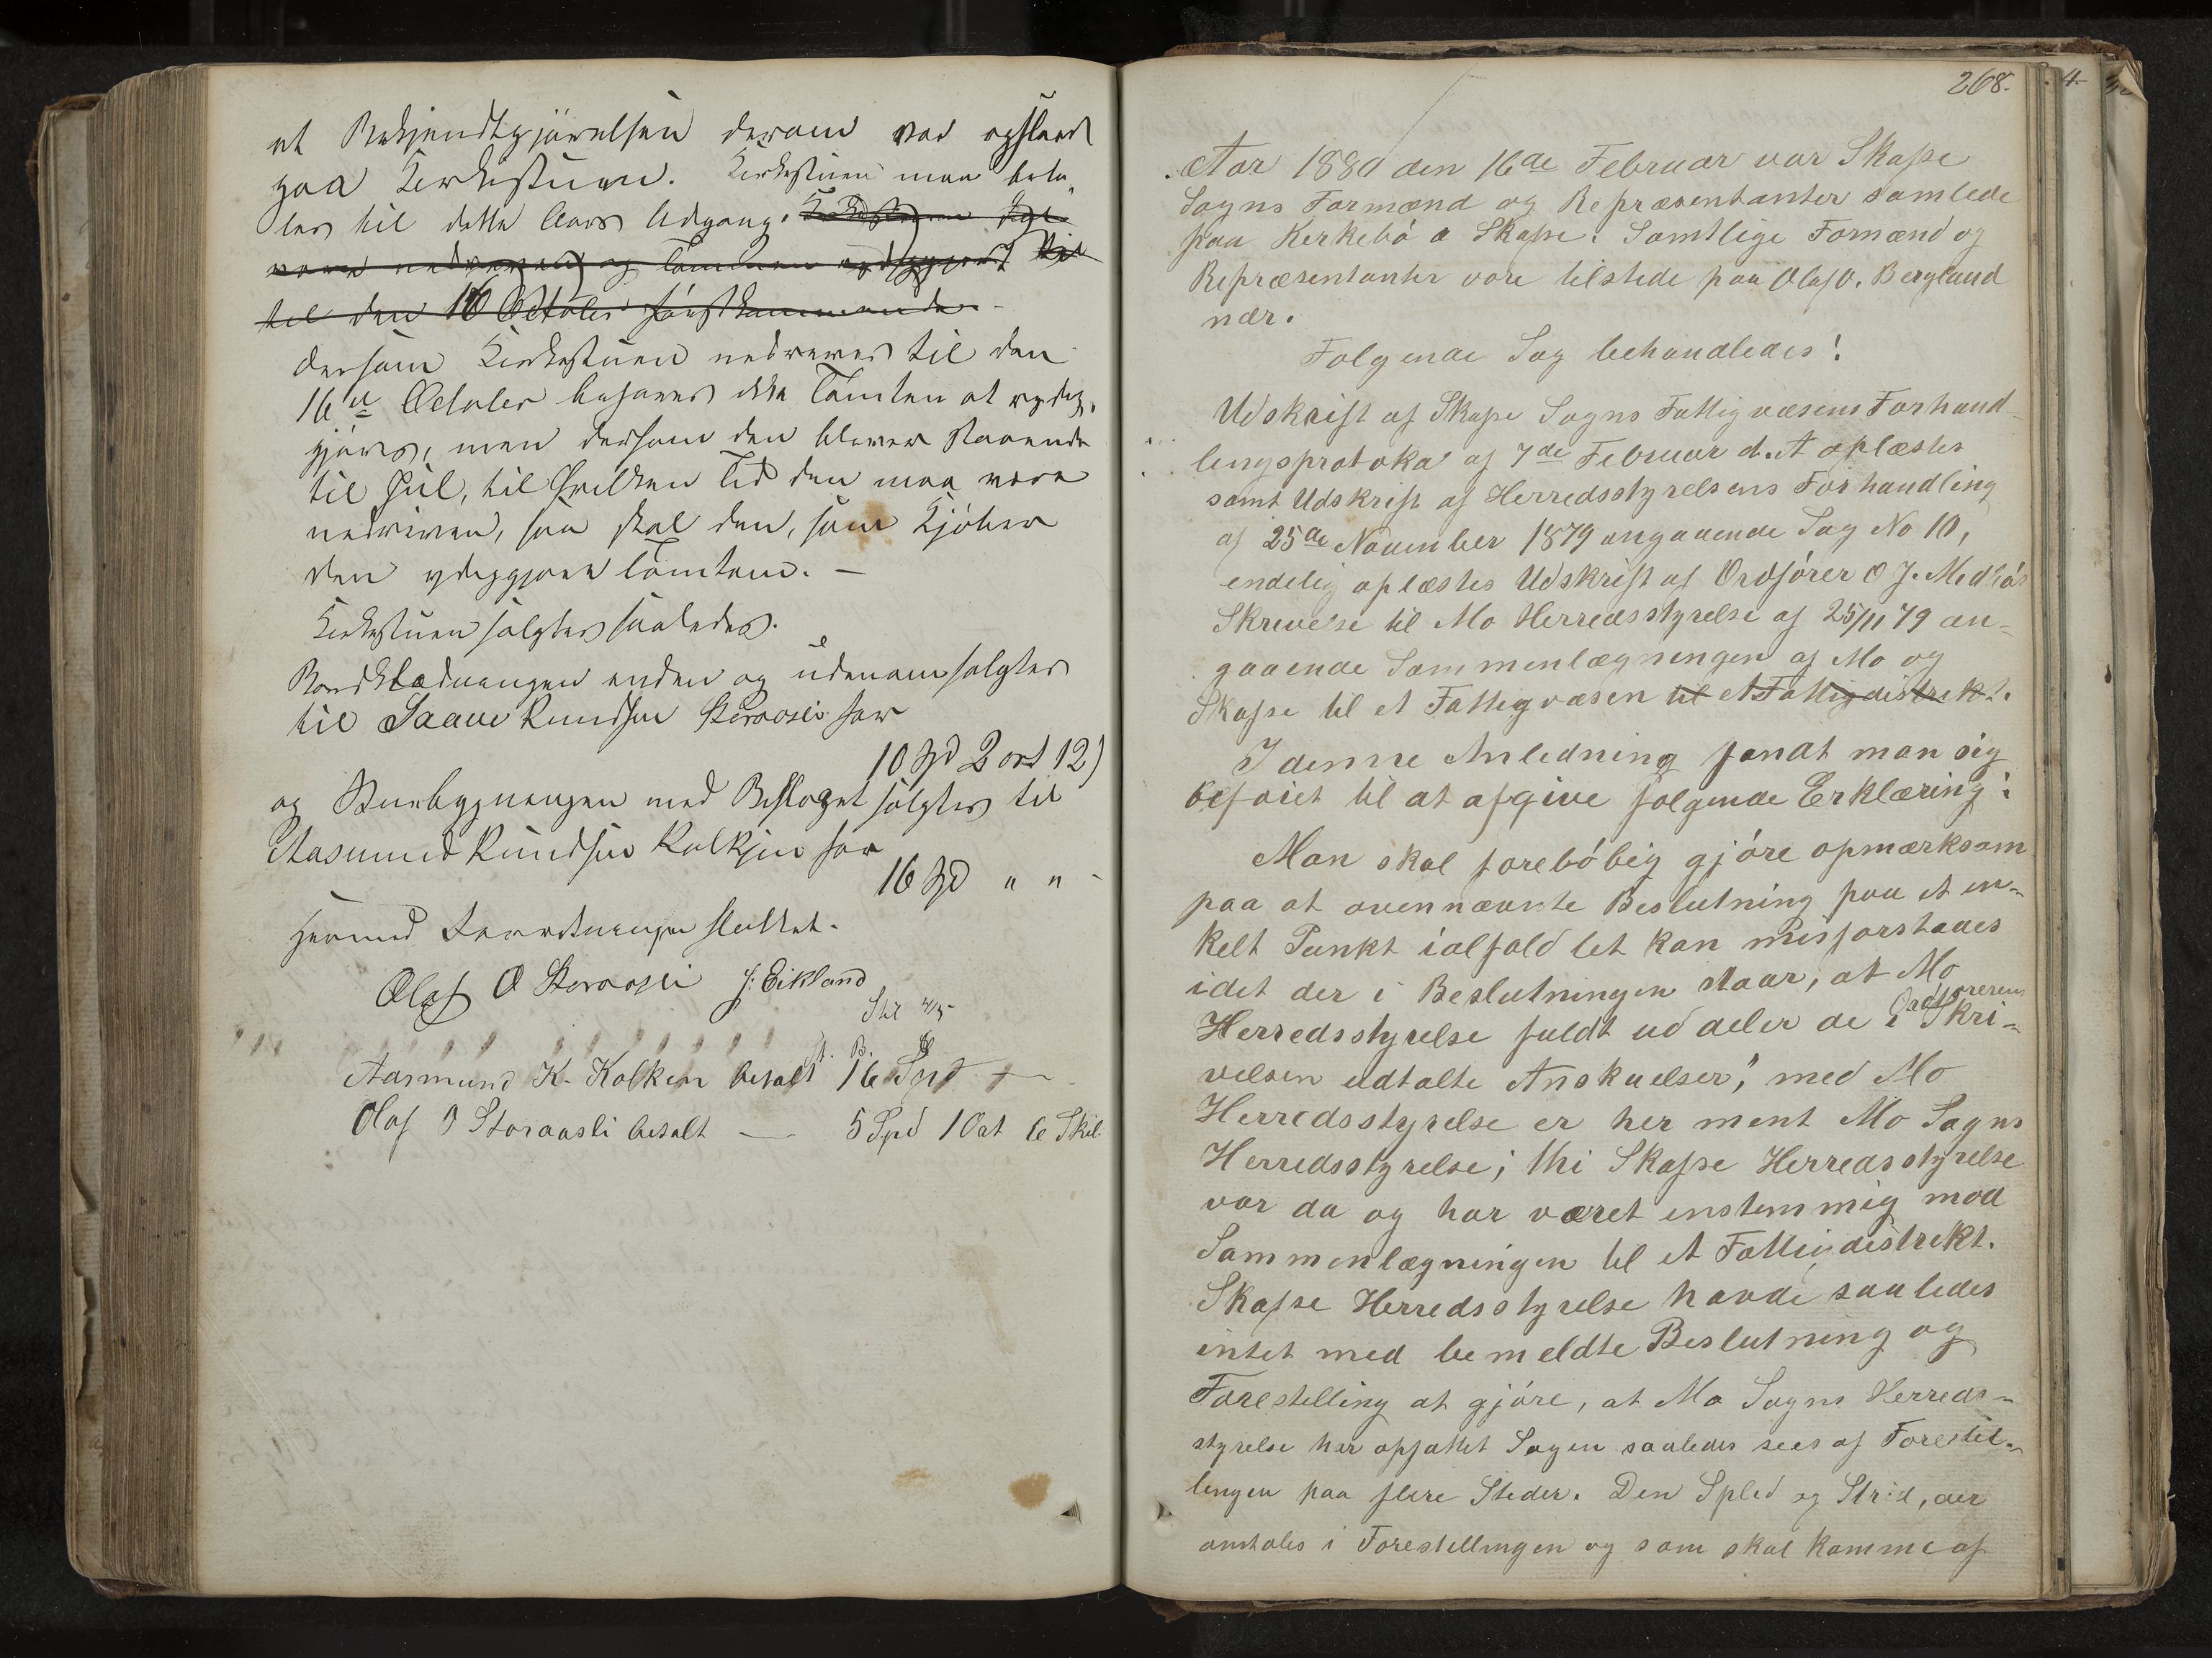 at Bekjendtgjörelsen derom var opslaaet
paa Kirkestuen. Kirkestuen maa beta-
les til dette Aars Udgang. Kirkestuen skal
være nedreven og Tomten rydiggjort
til den 16 October förstkommende.
dersom Kirkestuen nedrives til den
16de October behøves ikke Tomten at rydig-
gjøres, men dersom den bliver staaende
til Jul, til hvilken Tid den maa være
nedreven, saa skal den, som Kjøber
den ydiggjøre Tomten. —
Kirkestuen solgtes saaledes.
Bordklædningen inden og udenom solgtes
til Saave Knudsen Storaasli for
10 Spd 2 ort 12)
og Stuebygningen med Beslaget solgtes til
Aasmund Knudsen Kalkjen for
16 Spd " "
Hermed Forretningen sluttet.
Olaf O Storaasli J: Eikland
Aasmund K. Kolkin betalt 16 Spd —
Olaf O Storaasli betalt — 5 Spd 1 Ort 6 Skil.
268.
Aar 1880 den 16de Februar var Skafse
Sogns Formænd og Repræsentanter samlede
paa Kirkebó a Skafse. Samtlige Formænd og
Repræsentanter vare tilstede paa Olaf O. Bergland
nær.
Følgende Sag behandledes!
Udskrift af Skafse Sogns Fattigvæsens Forhand-
lingsprotokol af 7de Februar d. A oplæstes
samt Udskrift af Herredsstyrelsens Forhandling
af 25de November 1879 angaaende Sag No 10,
endelig oplæstes Udskrift af Ordfórer O J. Medbós
Skrivelse til Mo Herredsstyrelse af 25/11 79 an-
gaaende Sammenlægningen af Mo og
Skafse til et Fattigvæsen til et Fattigdistrekt.
I denne Anledning fandt man sig
befoiet til at afgive følgende Erklæring:
Man skal forelóbig gjóre opmærksom
paa at ovennævnte Beslutning paa et en-
kelt Punkt ialfald let kan misforstaaes
idet der i Beslutningen staar, at Mo
Herredsstyrelse fuldt ud deler de i Ordfóreren Skri-
velsen udtalte Anskuelser," med Mo
Herredsstyrelse er her ment Mo Sogns
Herredsstyrelse; thi Skafse Herredsstyrelse
var da og har været enstemmig mod
Sammenlægningen til et Fattigdistrekt.
Skafse Herredsstyrelse havde saaledes
intet med bemeldte Beslutning og
Forestelling at gjóre, at Mo Sogns Herreds-
styrelse har opfattet Sagen saaledes sees af Forestil-
lingen paa flere Steder. Den Splid og Strid, der
omtales i Forestellingen og som skal komme af